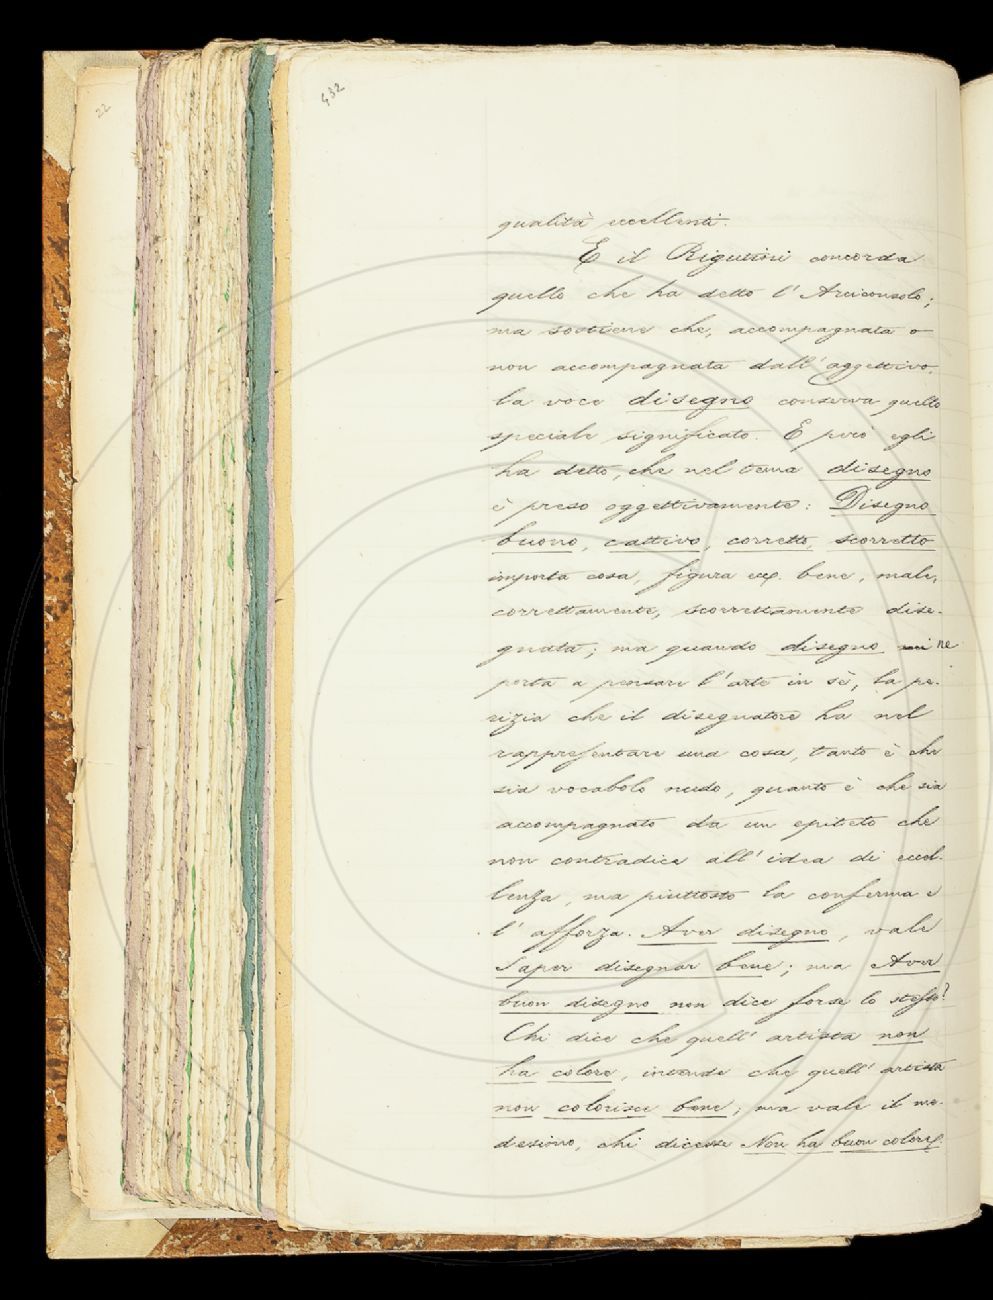 22
432
qualità eccellenti.
E il Rigutini concorda
quello che ha detto l'Arciconsolo;
ma sostiene che, accompagnata o
non accompagnata dall'aggettivo,
la voce disegno conserva quello
speciale significato. E però egli
ha detto, che nel tema disegno
è preso oggettivamente: Disegno
buono, cattivo, corretto, scorretto
importa cosa, figura ecc. bene, male,
correttamente, scorrettamente dise-
gnata; ma quando disegno ne
porta a pensare l'arte in sè, la pe-
rizia che il disegnatore ha nel
rappresentare una cosa, tanto è che
sia vocabolo nudo, quanto è che sia
accompagnato da un epiteto che
non contradica all'idea di eccel-
lenza, ma piuttosto la conferma e
l'afforza. Aver disegno, vale
Saper disegnar bene; ma Aver
buon disegno non dice forse lo stesso?
Chi dice che quell'artista non
ha colore, intende che quell'artista
non colorisce bene; ma vale il me-
desimo, chi dicesse Non ha buon colore.